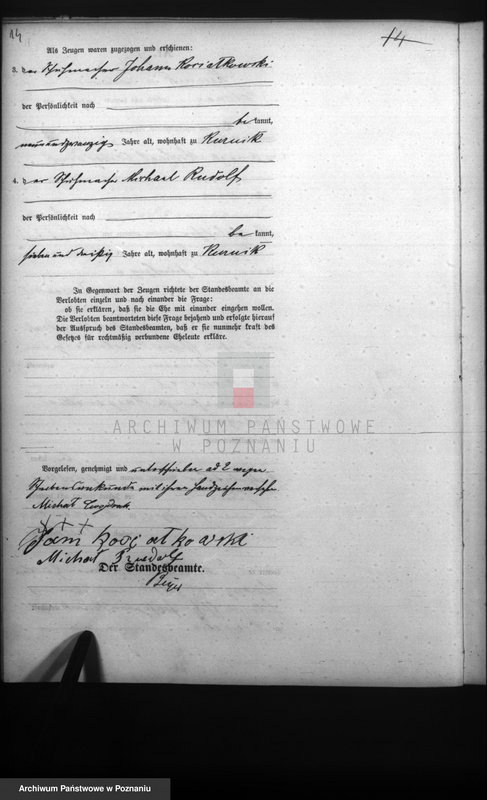 14
14
Als Zeugen waren zugezogen und erschienen:
3. der Schuhmacher Johann Koziatkowski
der Persönlichkeit nach
be kannt,
neunundzwanzig Jahre alt, wohnhaft zu Kurnik
4. der Schuhmacher Michael Rudolf
der Persönlichkeit nach
be kannt,
sieben und dreißig Jahre alt, wohnhaft zu Kurnik
In Gegenwart der Zeugen richtete der Standesbeamte an die
Verlobten einzeln und nach einander die Frage:
ob sie erklären, daß sie die Ehe mit einander eingehen wollen.
Die Verlobten beantworteten diese Frage bejahend und erfolgte hierauf
der Ausspruch des Standesbeamten, daß er sie nunmehr kraft des
Gesetzes für rechtmäßig verbundene Eheleute erkläre.
ARCHIWUM PAŃSTWOWE
W POZNANIU
Vorgelesen, genehmigt und unterschrieben ad 2 wegen
Schreibensunkunde mit ihrem Handzeichen versehen
Michał
+++
Jan Koziatkowski
Michał Rudolf
Der Standesbeamte.
Archiwum Państwowe w Poznaniu